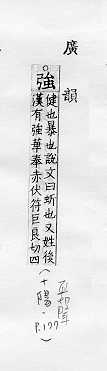 廣韻
○強
健也暴也說文曰蚚也又姓後
漢有強華奉赤伏符巨良切四
(十陽.
P.177)